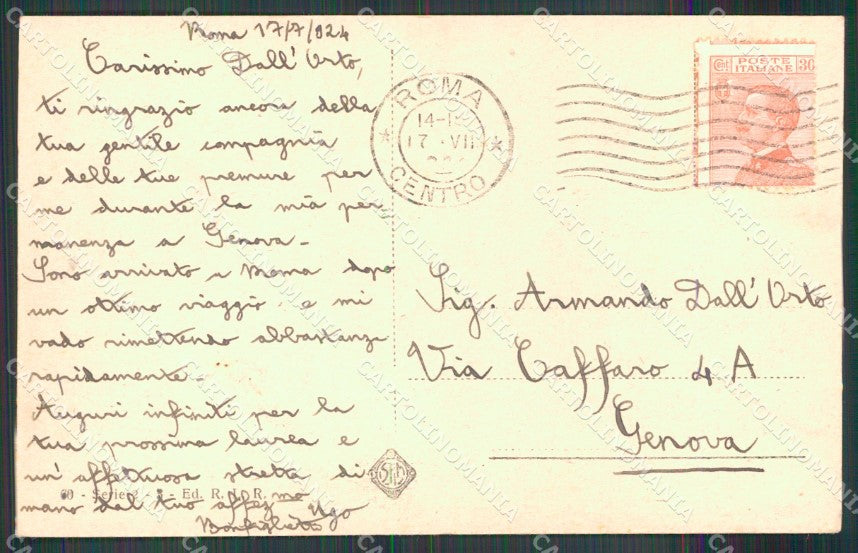 Roma 17/7/924
Carissimo Dall' Orto,
ti ringrazio ancora della
tua gentile compagnia
e delle tue premure per
me durante la mia per
manenza a Genova -
Sono arrivato a Roma dopo
un ottimo viaggio e mi
vado rimettendo abbastanza
rapidamente -
Auguri infiniti per la
tua prossima laurea e
un' affettuosa stretta di
mano dal tuo affez.mo Ugo
60 - Serie - Ed. R.
ROMA
14-1
17 · VII
CENTRO
POSTE
ITALIANE
Cent 30
Sig. Armando Dall' Orto
Via Caffaro 4 A
Genova
CARTOLINOMANIA